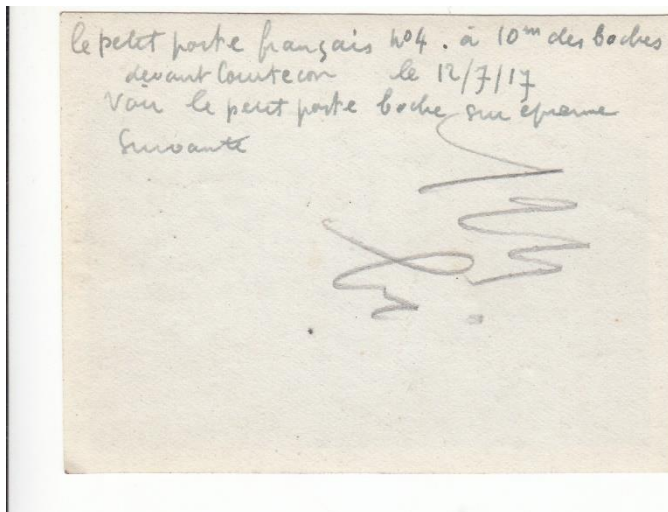 le petit poste français no4. à 10m des boches
devant Courtecon le 12/7/17
Voir le petit poste boche sur épreuve
suivante